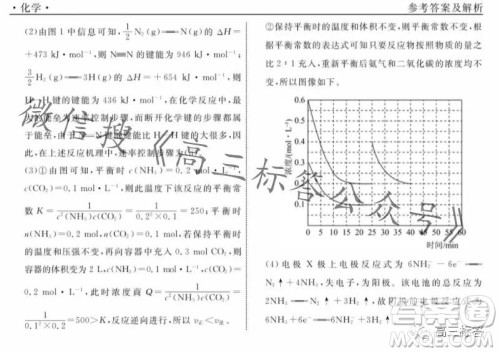 ·化学·
参考答案及解析
(2)由图1中信息可知,1/2 N₂(g)══N(g)的 ΔH=
+473 kJ·mol⁻¹,则N≡N的键能为 946 kJ·mol⁻¹;
3/2 H₂(g)══3H(g)的 ΔH=+654 kJ·mol⁻¹,则
H—H键的键能为 436 kJ·mol⁻¹,在化学反应中,最
大能垒为速率控制步骤,而断开化学键的步骤都属
于能垒,由于N≡N键的键能比H—H键的大很多,因
此,在上述反应机理中,速率控制步骤为
(3)①由图可知,平衡时 c(NH₃)=0.2 mol·L⁻¹,
c(CO₂)=0.1 mol·L⁻¹,则此温度下该反应的平衡常
数 K=1/(c²(NH₃)·c(CO₂))=1/(0.2²×0.1)=250;平衡时
n(NH₃)=0.2 mol,n(CO₂)=0.1 mol,若保持平衡时
的温度和压强不变,再向容器中充入 0.3 mol CO₂,则
容器的体积变为 2 L,c(NH₃)=0.1 mol·L⁻¹,c(CO₂)=
0.2 mol·L⁻¹,此时浓度商 Q=1/(c²(NH₃)·c(CO₂))=
1/(0.1²×0.2)=500>K,反应逆向进行,所以 v正<v逆。
②保持平衡时的温度和体积不变,则平衡常数不变,根
据平衡常数的表达式可知只要反应物按照物质的量之
比 2∶1 充入,重新平衡后氨气和二氧化碳的浓度均不
变,所以图像如下。
浓度/(mol·L⁻¹)
0.6
0.5
0.4
0.3
0.2
0.1
0 5 10 15 20 25 30 35 40 45 50 55 60
时间/min
(4)电极 X 极上电极反应式为 6NH₂⁻−6e⁻══
N₂↑+4NH₃↑,失电子,为阳极。该电池的总反应为
2NH₃══N₂↑+3H₂↑,故阴极的电极反应为
6NH₃+6e⁻══3H₂↑+6NH₂⁻。
微信搜《高三标答公众号》
高三标答